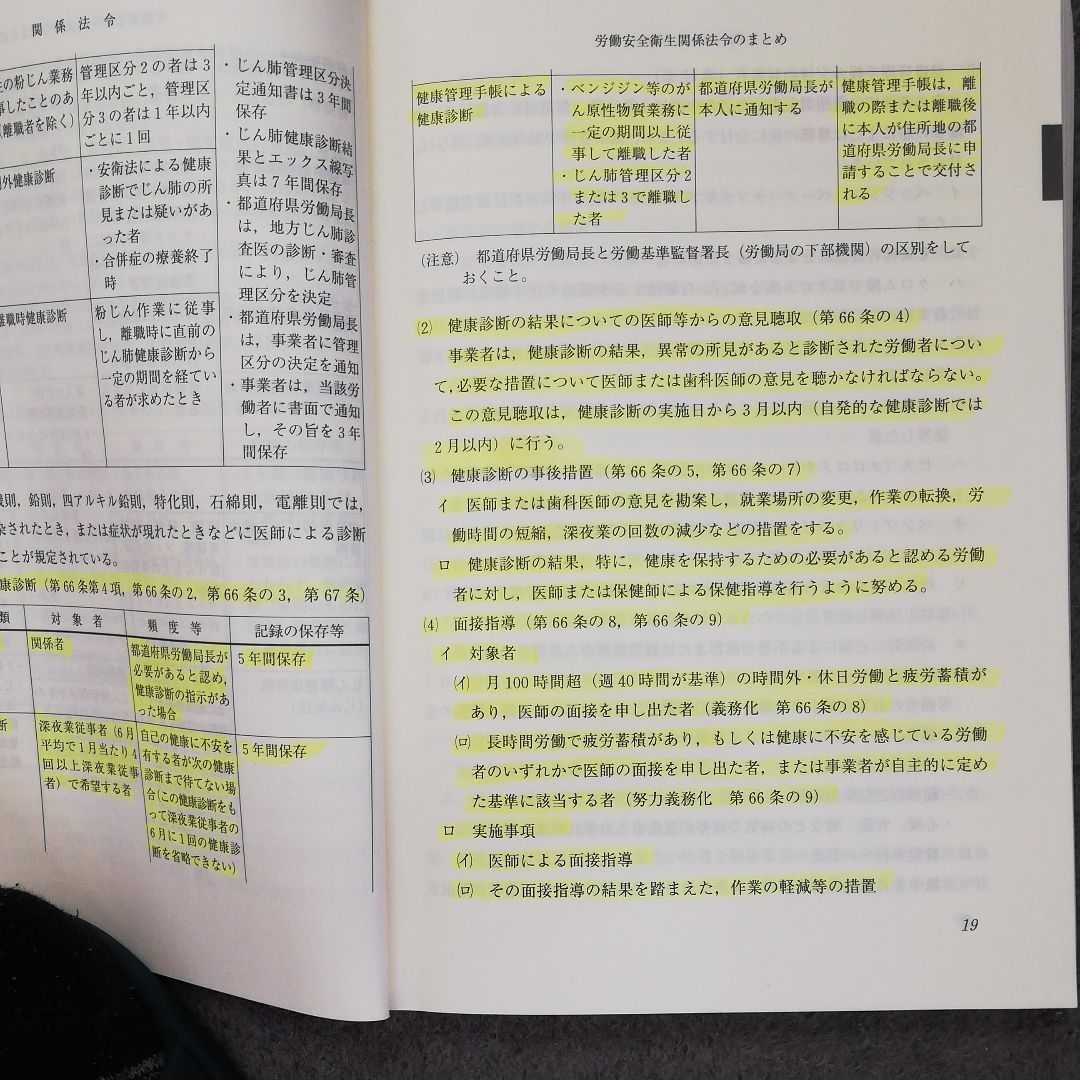 関係法令
の粉じん業務
事したことのあ
(離職者を除く)
管理区分2の者は3
年以内ごと，管理区
分3の者は1年以内
ごとに1回
・じん肺管理区分決
定通知書は3年間
保存
・じん肺健康診断結
果とエックス線写
真は7年間保存
・都道府県労働局長
は，地方じん肺診
査医の診断・審査
により，じん肺管
理区分を決定
・都道府県労働局長
は，事業者に管理
区分の決定を通知
・事業者は，当該労
働者に書面で通知
し，その旨を3年
間保存
外健康診断
・安衛法による健康
診断でじん肺の所
見または疑いがあ
った者
・合併症の療養終了
時
離職時健康診断
粉じん作業に従事
し，離職時に直前の
じん肺健康診断から
一定の期間を経てい
る者が求めたとき
則，鉛則，四アルキル鉛則，特化則，石綿則，電離則では，
染されたとき，または症状が現れたときなどに医師による診断
ことが規定されている。
康診断（第66条第4項，第66条の2，第66条の3，第67条）
類
対象者
頻度等
記録の保存等
関係者
都道府県労働局長が
必要があると認め，
健康診断の指示があ
った場合
5年間保存
断
深夜業従事者（6月
平均で1月当たり4
回以上深夜業従事
者）で希望する者
自己の健康に不安を
有する者が次の健康
診断まで待てない場
合(この健康診断をも
って深夜業従事者の
6月に1回の健康診
断を省略できない)
5年間保存
労働安全衛生関係法令のまとめ
健康管理手帳による
健康診断
・ベンジジン等のが
ん原性物質業務に
一定の期間以上従
事して離職した者
・じん肺管理区分2
または3で離職し
た者
都道府県労働局長が
本人に通知する
健康管理手帳は，離
職の際または離職後
に本人が住所地の都
道府県労働局長に申
請することで交付さ
れる
（注意） 都道府県労働局長と労働基準監督署長（労働局の下部機関）の区別をして
おくこと。
(2) 健康診断の結果についての医師等からの意見聴取（第66条の4）
事業者は，健康診断の結果，異常の所見があると診断された労働者につい
て，必要な措置について医師または歯科医師の意見を聴かなければならない。
この意見聴取は，健康診断の実施日から3月以内（自発的な健康診断では
2月以内）に行う。
(3) 健康診断の事後措置（第66条の5，第66条の7）
イ 医師または歯科医師の意見を勘案し，就業場所の変更，作業の転換，労
働時間の短縮，深夜業の回数の減少などの措置をする。
ロ 健康診断の結果，特に，健康を保持するための必要があると認める労働
者に対し，医師または保健師による保健指導を行うように努める。
(4) 面接指導（第66条の8，第66条の9）
イ 対象者
(イ) 月100時間超（週40時間が基準）の時間外・休日労働と疲労蓄積が
あり，医師の面接を申し出た者（義務化 第66条の8）
(ロ) 長時間労働で疲労蓄積があり，もしくは健康に不安を感じている労働
者のいずれかで医師の面接を申し出た者，または事業者が自主的に定め
た基準に該当する者（努力義務化 第66条の9）
ロ 実施事項
(イ) 医師による面接指導
(ロ) その面接指導の結果を踏まえた，作業の軽減等の措置
19